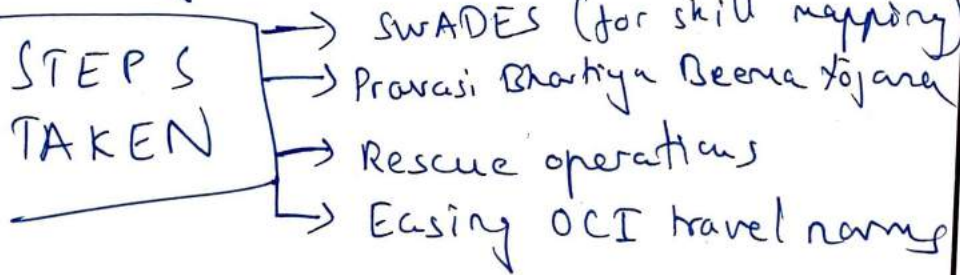 STEPS
TAKEN
→ SWADES (for skill mapping)
→ Pravasi Bhartiya Beema Yojana
→ Rescue operations
→ Easing OCI travel norms